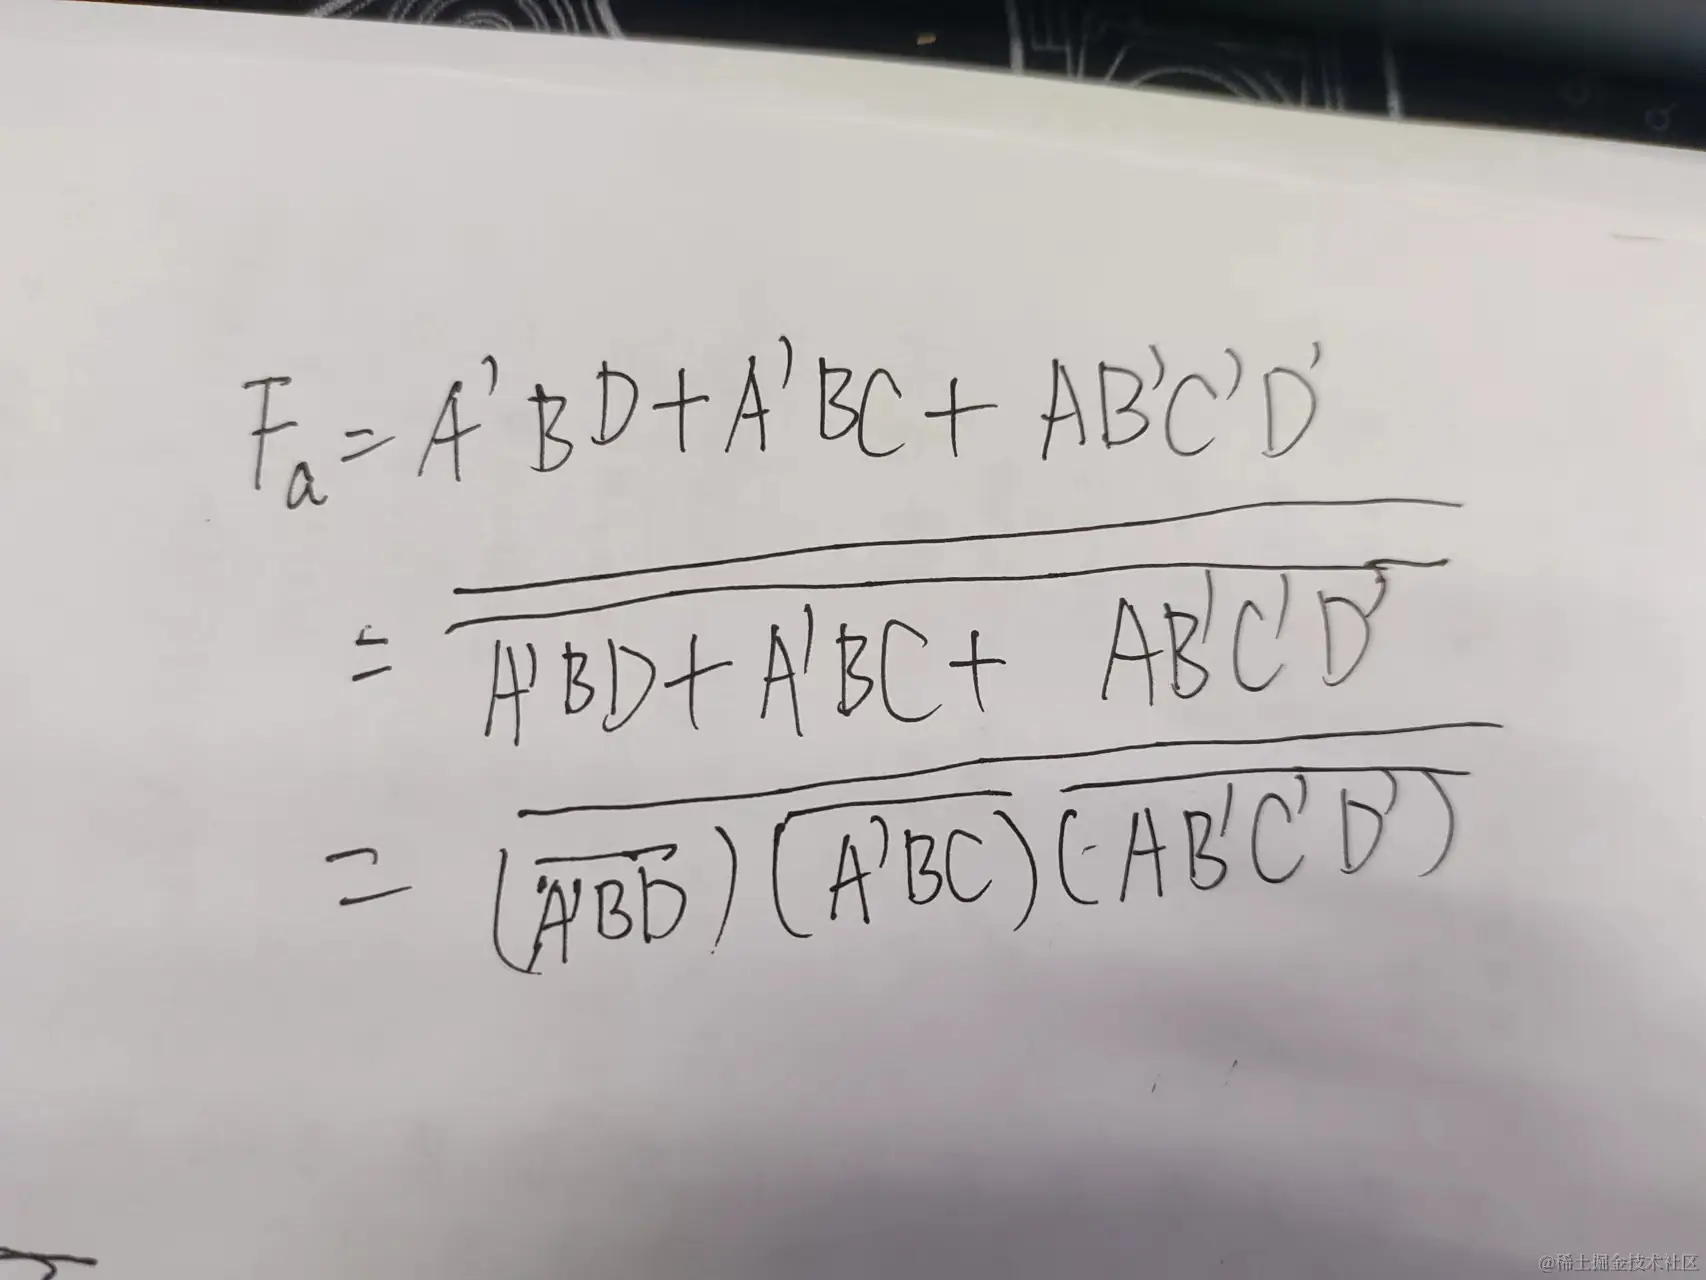 Fa = A'BD + A'BC + AB'C'D'
= \overline{\overline{A'BD + A'BC + AB'C'D'}}
= \overline{(\overline{A'BD})(\overline{A'BC})(\overline{AB'C'D'})}
@稀土掘金技术社区